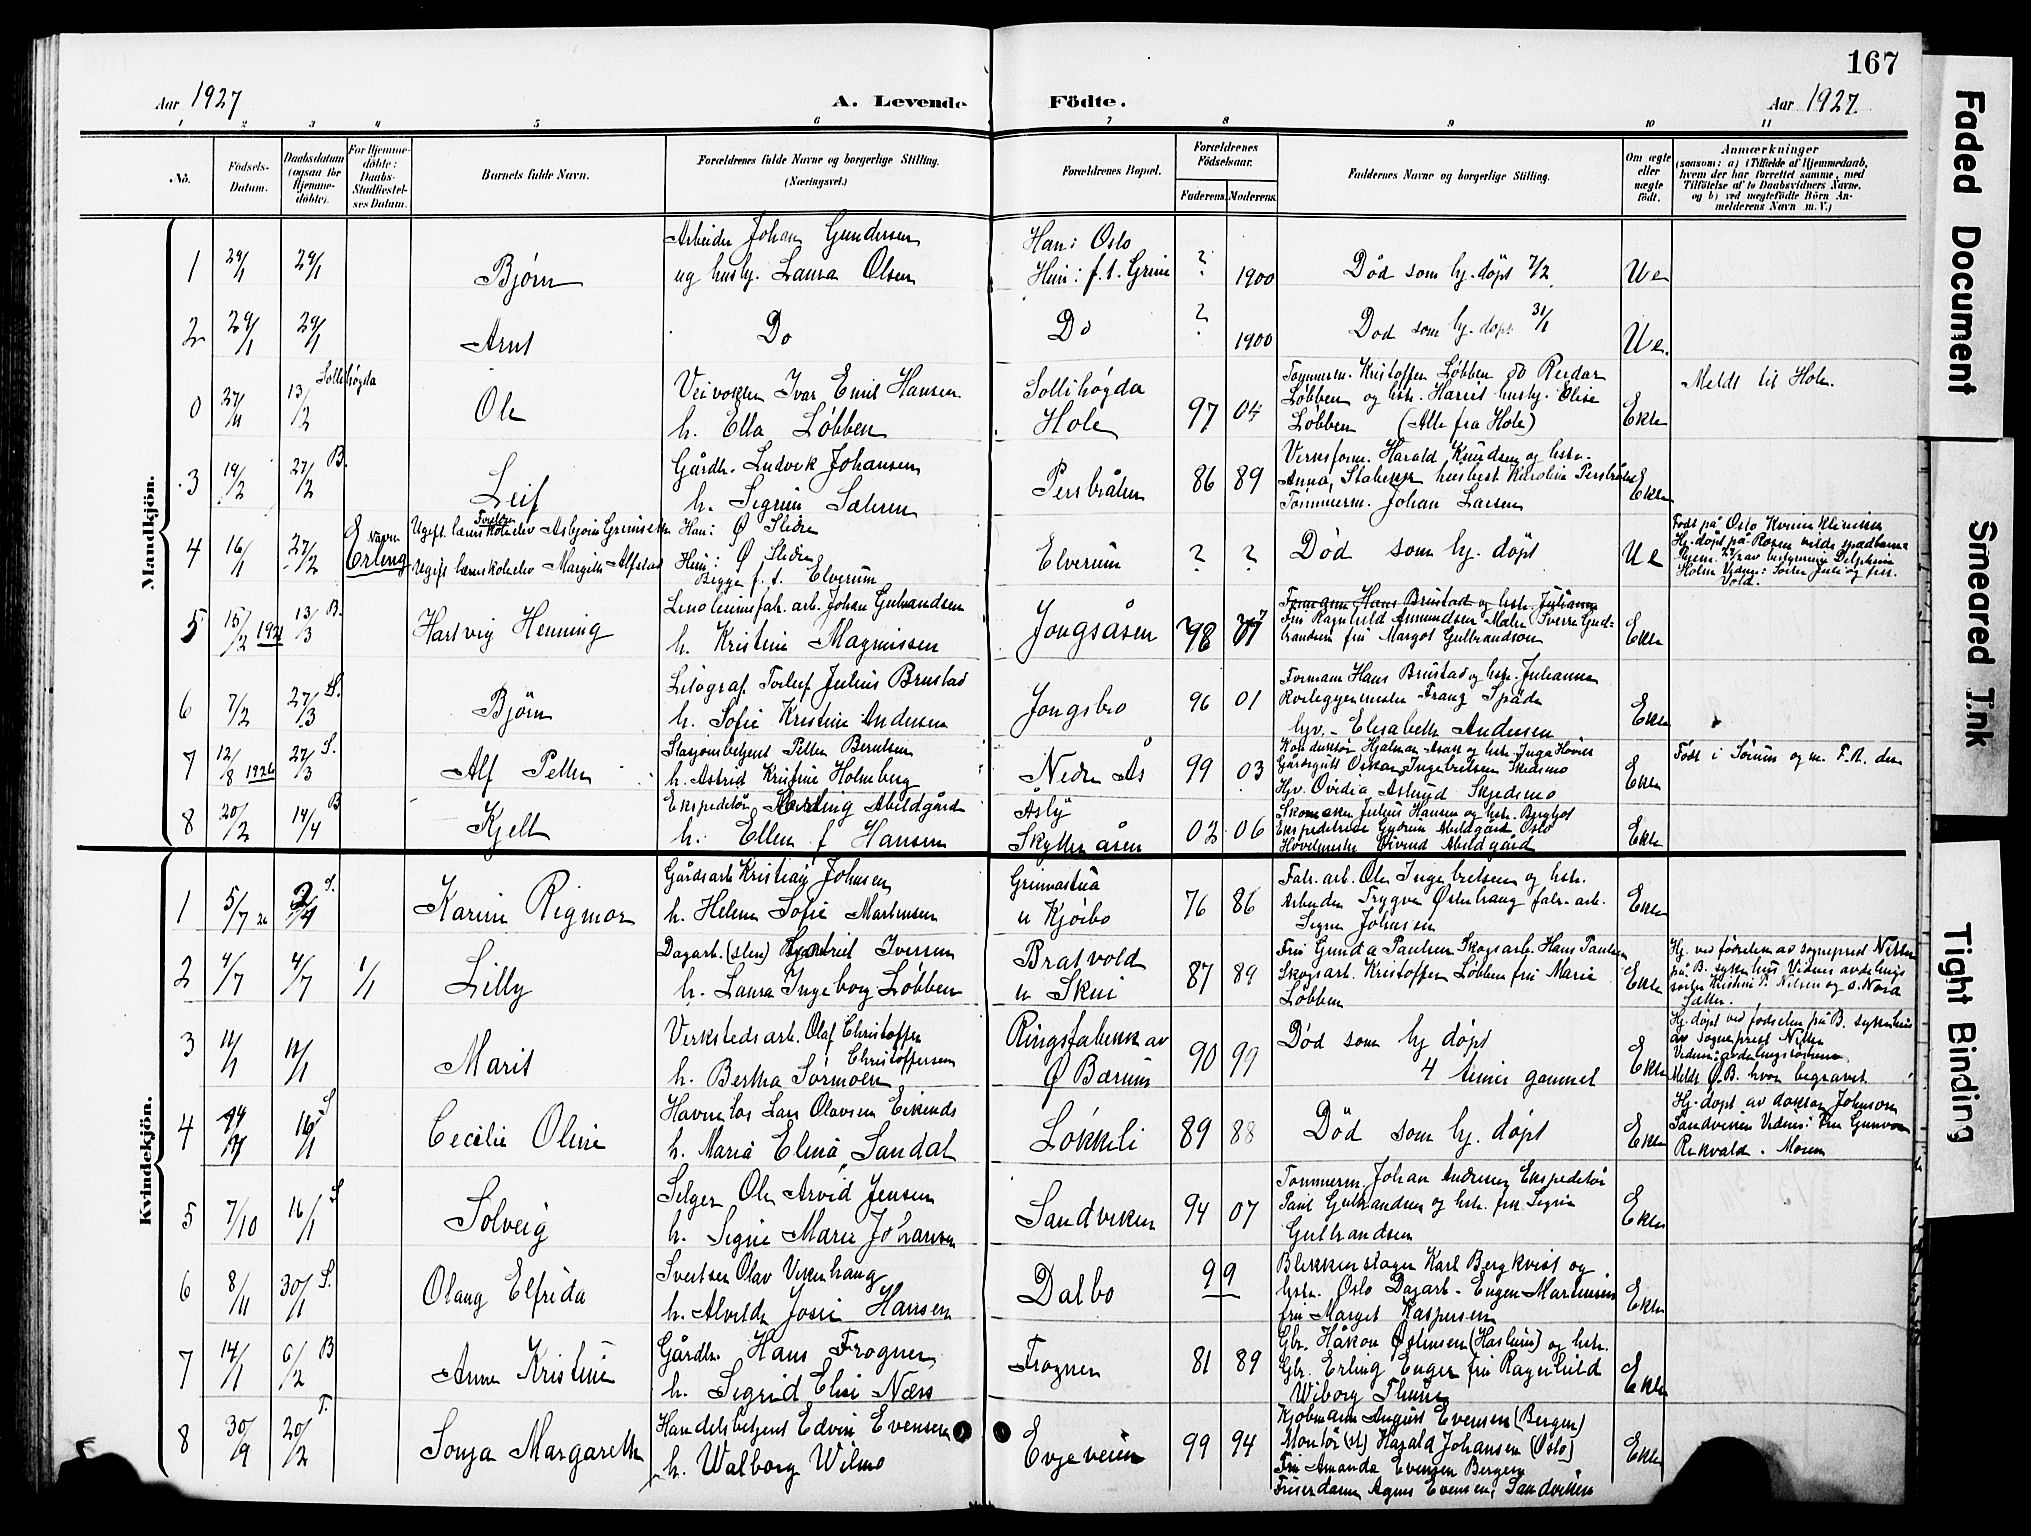 167
Aar 1927
A. Levende Födte.
Aar 1927
1 2 3 4 5 6 7 8 9 10 11
No.
Födsels-Datum.
Daabsdatum (ogsaa for Hjemmedöbte).
For Hjemmedöbte: Daabs-Stadfæstelses Datum.
Barnets fulde Navn.
Forældrenes fulde Navne og borgerlige Stilling. (Næringsvei.)
Forældrenes Bopæl.
Forældrenes Födselsaar.
Faderens. Moderens.
Faddernes Navne og borgerlige Stilling.
Om ægte eller uægte födt.
Anmærkninger
(saasom: a) i Tilfælde af Hjemmedaab, hvem der har forrettet samme, med Tilföielse af to Daabsvidners Navne, og b) ved uægtefödte Börn Anmelderens Navn m. V.)
Mandkjön.
1 29/1 29/1 Bjørn
Arbeider Johan Gundersen
og husby. Laura Olsen
Han: Oslo
Hun: f.t. Grini
? 1900
Død som hj. døpt 7/2
Ue
2 29/1 29/1 Arnt
Do
Do
? 1900
Død som hj. døpt 31/1
Ue.
0 27/11 13/2 Sollihøgda
Ole
Veivokter Ivar Emil Hansen
h. Ella Løbben
Sollihøgda
Hole
97 04
Tømmerm. Kristoffer Løbben og Reidar
Løbben og hstr. Harriet husby. Elise
Løbben (Alle fra Hole)
Ekte
Meldt til Hole.
3 19/2 27/2 B.
Leif
Gårdbr. Ludvik Johansen
h. Sigrun Sæteren
Persbråten
86 89
Verksform. Harald Knudsen og hstr.
Anna, Stabekk, husbest Karoline Persbråten
Tømmerm. Johan Larsen
Ekte
4 16/1 27/2
Navn
Erling
Ugift lærerskoleelev Asbjørn
Ugift lærerskoleelev Margith
Han: Ø Slidre
Hun: Ø Slidre
Begge f. t. Elverum
Elverum
? ?
Død som hj. døpt
Ue
Født på Oslo Kvinneklinikk
Hj. døpt på
Holm Vidner: Søster Juli og frk.
Vold.
5 15/2 1921 13/3 B.
Hartvig Henning
Linoleumsfabr. arb. Johan Gulbrandsen
h. Kristine Magnussen
Jongsåsen
98 07
Formann Hans Brustad og hstr. Julianne
Fru Ragnhild Amundsen Maler Sverre Gulbrandsen
fru Margot Gulbrandsen
Ekte
6 7/2 27/3 S.
Bjørn
Litograf Torleif Julius Brustad
h. Sofie Kristine Andersen
Jongsbro
96 01
Formann Hans Brustad og hstr. Julianne
Rørleggermester Franz Späde
hgv. Elisabeth Andersen
Ekte
7 12/8 1926 27/3 S.
Alf Petter
Stasjonsbetjent Petter Berntsen
h. Astrid Kristine Holmberg
Nedre Ås
99 03
Konduktør Hjalmar
Gårdsgutt Oskar Ingebretsen Skedsmo
Hgv. Ovidia Astrid Skjedsmo
Ekte
Født i Sørum og m. F.R. der
8 20/2 14/4 B
Kjell
Ekspeditør Erling Abildgård
h. Ellen f Hansen
Åsly
Skytteråsen
02 06
Skomaker Julius Hansen og hstr. Bergljot
Ekspeditrise Gudrun Abildgård Oslo
Øivind Abildgård
Ekte
Kvindekjön.
1 5/7 26 2/1 S.
Karin Rigmor
Gårdsarb Kristian Johnsen
h. Helene Sofie Martinsen
Grinistua
u Kjørbo
76 86
Fabr. arb. Ole Ingebretsen og hstr.
Arbeider Trygve Østerhaug fabr. arb.
Signe Johnsen
Ekte
2 4/7 4/7 1/1
Lilly
Dagarb. (sten) Iversen
h. Laura Ingeborg Løbben
Bratvold
u Skui
87 89
Fru Gunda Paulsen Skogsarb. Hans Paulsen
Skogsarb. Kristoffer Løbben fru Marie
Løbben
Ekte
Hj. ved fødselen av sogneprest Nissen
på B. sykehus Vidner avdelings
søster Kristine Nilsen og s. Nora
Sæther.
3 11/1 11/1
Marit
Verkstedsarb. Olaf Christoffer
Christoffersen
h. Bertha Sørmoen
Ringstabekk av
Ø Bærum
90 99
Død som hj døpt
4 timer gammel
Ekte
Hj. døpt ved fødselen på B. sykehus
av Sogneprest Nissen
Vidner: avdelingssøstrene
Meldt Ø.B. hvor begravet.
4 16/1 S
Cecilie Oline
Havnelos Lars Olavsen
h. Maria Elina Sandal
Løkkeli
89 88
Død som hj. døpt
Ekte
Hj. døpt av doktor Johnson
Sandviken Vidner: Fru Gunvor
Rekvald. Moren
5 7/10 16/1 S
Solveig
Selger Ole Arvid Jensen
h. Signe Marie Johansen
Sandviken
94 07
Tømmerm. Johan Andresen Ekspeditør
Paul Gulbrandsen og hstr. fru Signe
Gulbrandsen
Ekte
6 8/11 30/1 S.
Olaug Elfrida
Sveitser Olav Vikenhaug
h. Alvilde Josie Hansen
Dalbo
99
Blikkenslager Karl Bergkvist og
hstr. Oslo Dagarb. Eugen Martinsen
fru Marget Kaspersen
Ekte
7 14/1 6/2 B
Anne Kristine
Gårdbr. Hans Frogner
h. Sigrid Elise Næss
Frogner
81 89
Gbr. Håkon Østensen (Haslum) og hstr.
Gbr. Erling Enger fru Ragnhild
Wiborg Thune
Ekte
8 30/9 20/2 T.
Sonja Margareth
Handelsbetjent Edvin Evensen
h. Walborg Wilmo
Evjeveien
99 94
Kjøbmann August Evensen (Bergen)
Montør (el) Harald Johansen (Oslo)
Fru Amanda Evensen Bergen
Frisørdame Agnes Evensen, Sandviken
Ekte
Faded Document
Smeared Ink
Tight Binding